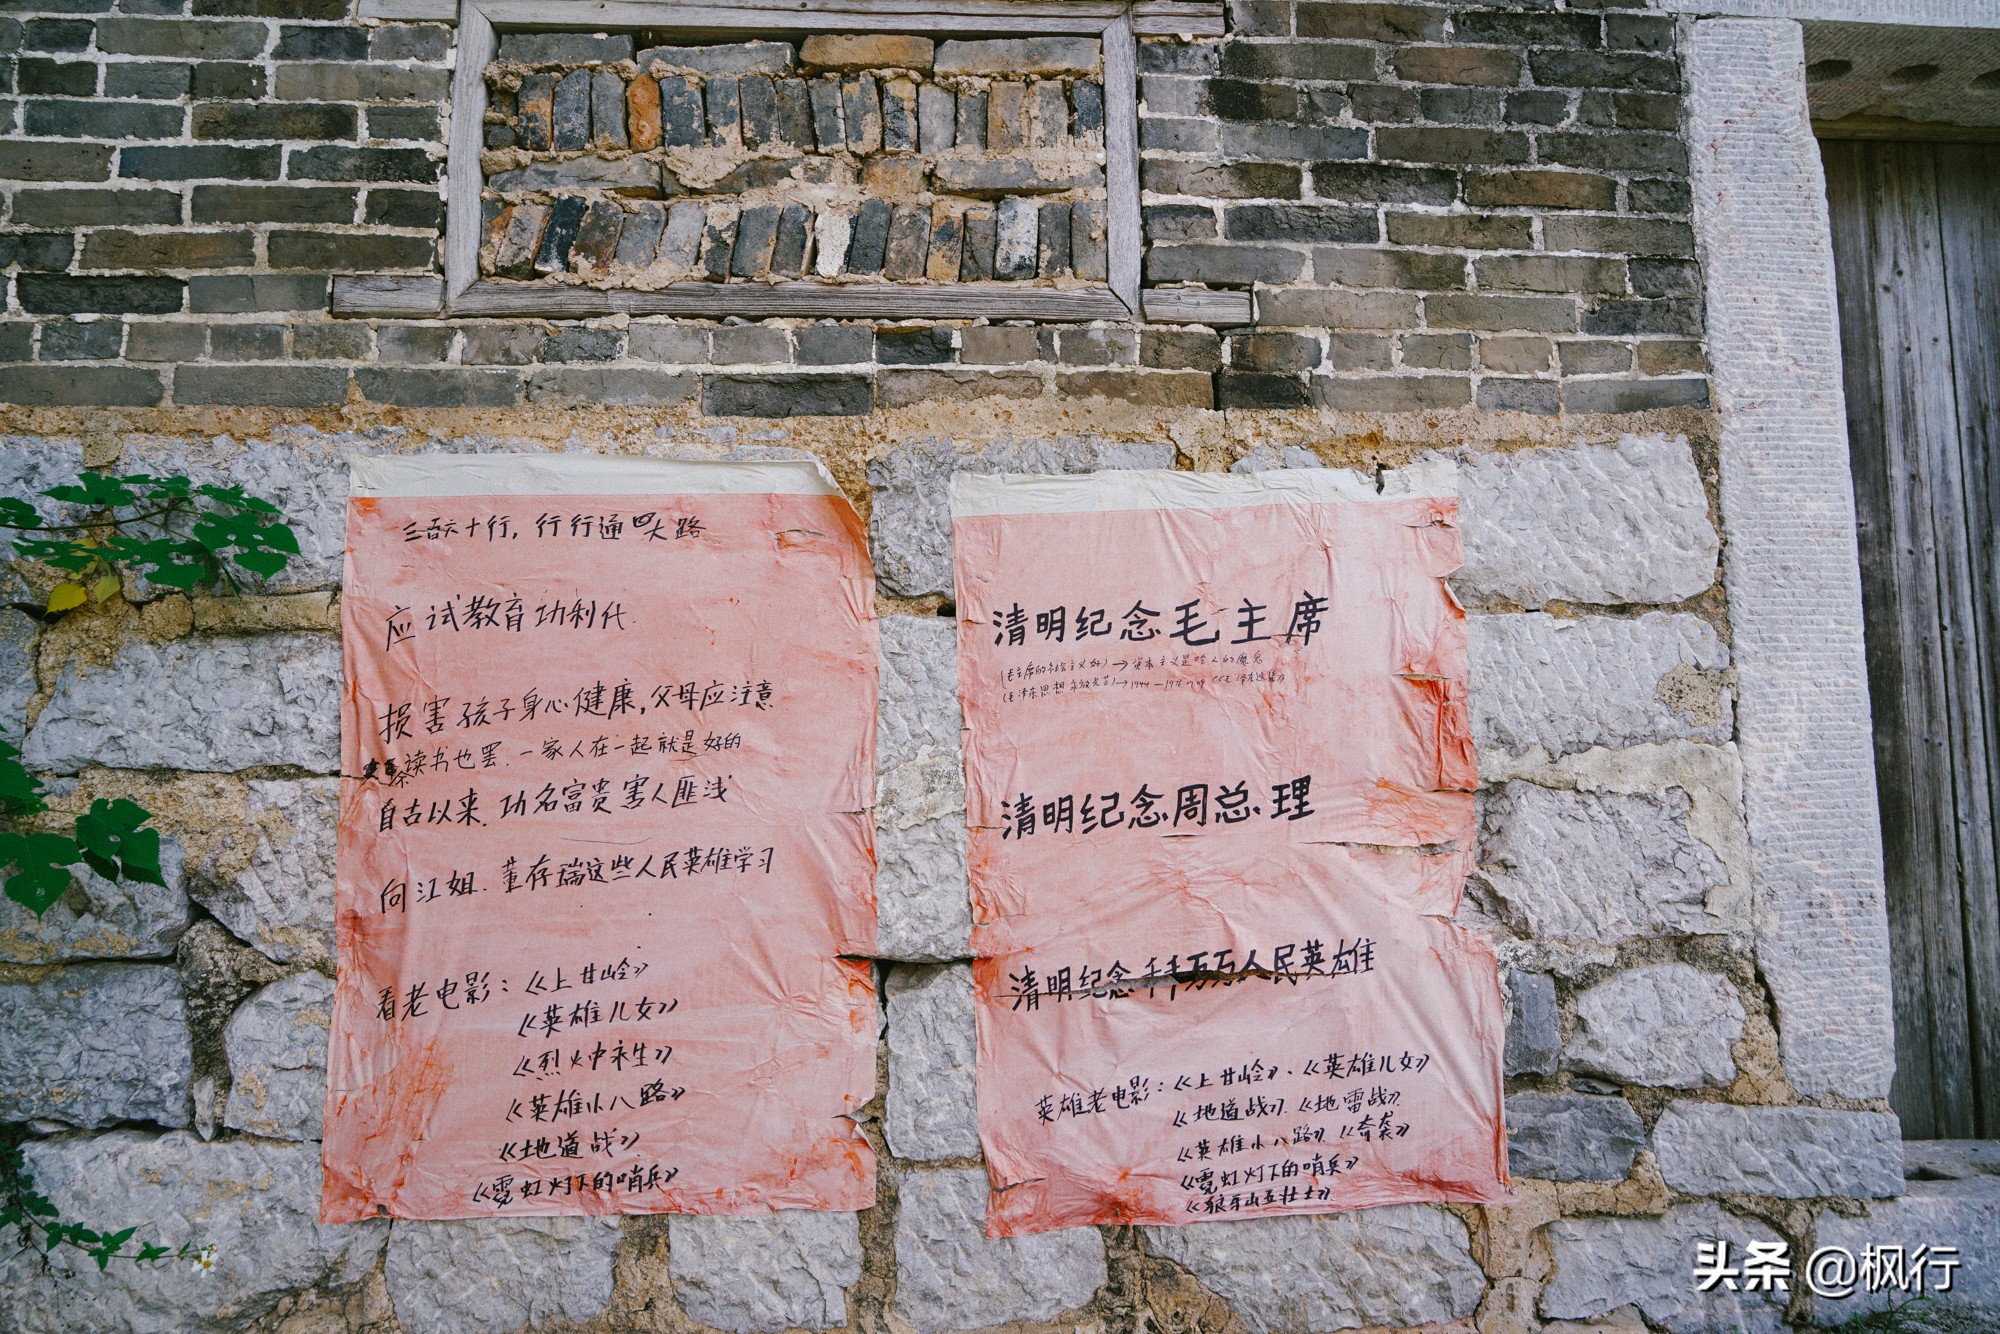 三百六十行，行行通四大路
应试教育功利化
损害孩子身心健康，父母应注意
读书也罢．一家人在一起就是好的
自古以来．功名富贵害人匪浅
向江姐．董存瑞这些人民英雄学习
看老电影：《上甘岭》
《英雄儿女》
《烈火中永生》
《英雄小八路》
《地道战》
《霓虹灯下的哨兵》
清明纪念毛主席
(毛主席的社会主义好)→资本主义是吃人的魔鬼
清明纪念周总理
清明纪念千千万万人民英雄
英雄老电影：《上甘岭》、《英雄儿女》
《地道战》．《地雷战》．
《英雄小八路》．《奇袭》
《霓虹灯下的哨兵》
《狼牙山五壮士》
头条 @枫行